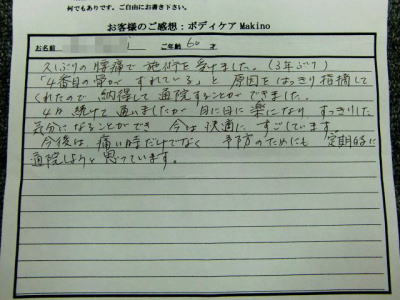 何でもあります。ご自由にお書き下さい。
お客様のご感想：ボディケアMakino
お名前 ご年齢 60才
久しぶりの腰痛で施術を受けました。（3年ぶり）
「4番目の骨がずれている」と原因をはっきり指摘して
くれたので納得して通院することができました。
4回続けて通いましたが日に日に楽になりすっきりした
気分になることができ今は快適にすごしています。
今後は痛い時だけでなく予防のためにも定期的に
通院しようと思っています。